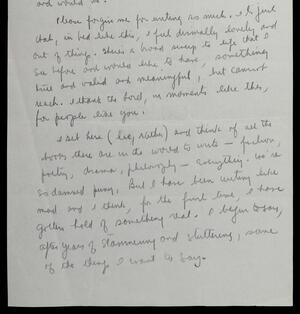 and would be.
Please forgive me for writing so much. It's just
that, in bed like this, I feel dismally lonely and
out of things. There's a broad sweep to life that I
see before and would like to have, something
true and valid and meaningful, but cannot
reach. I thank the Lord, in moments like this,
for people like you.
I sit here (lie, rather) and think of all the
books there are in the world to write — fiction,
poetry, drama, philosophy — everything. We're
so damned puny. But I have been writing like
mad and I think, for the first time, I have
gotten hold of something real. I begin to say,
after years of stammering and stuttering, some
of the things I want to say.